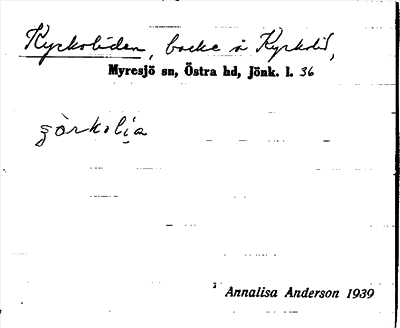 Kyrkoliden, backe å Kyrkolid,
Myresjö sn, Östra hd, Jönk. l. 36
ʒòrkolia
Annalisa Anderson 1939